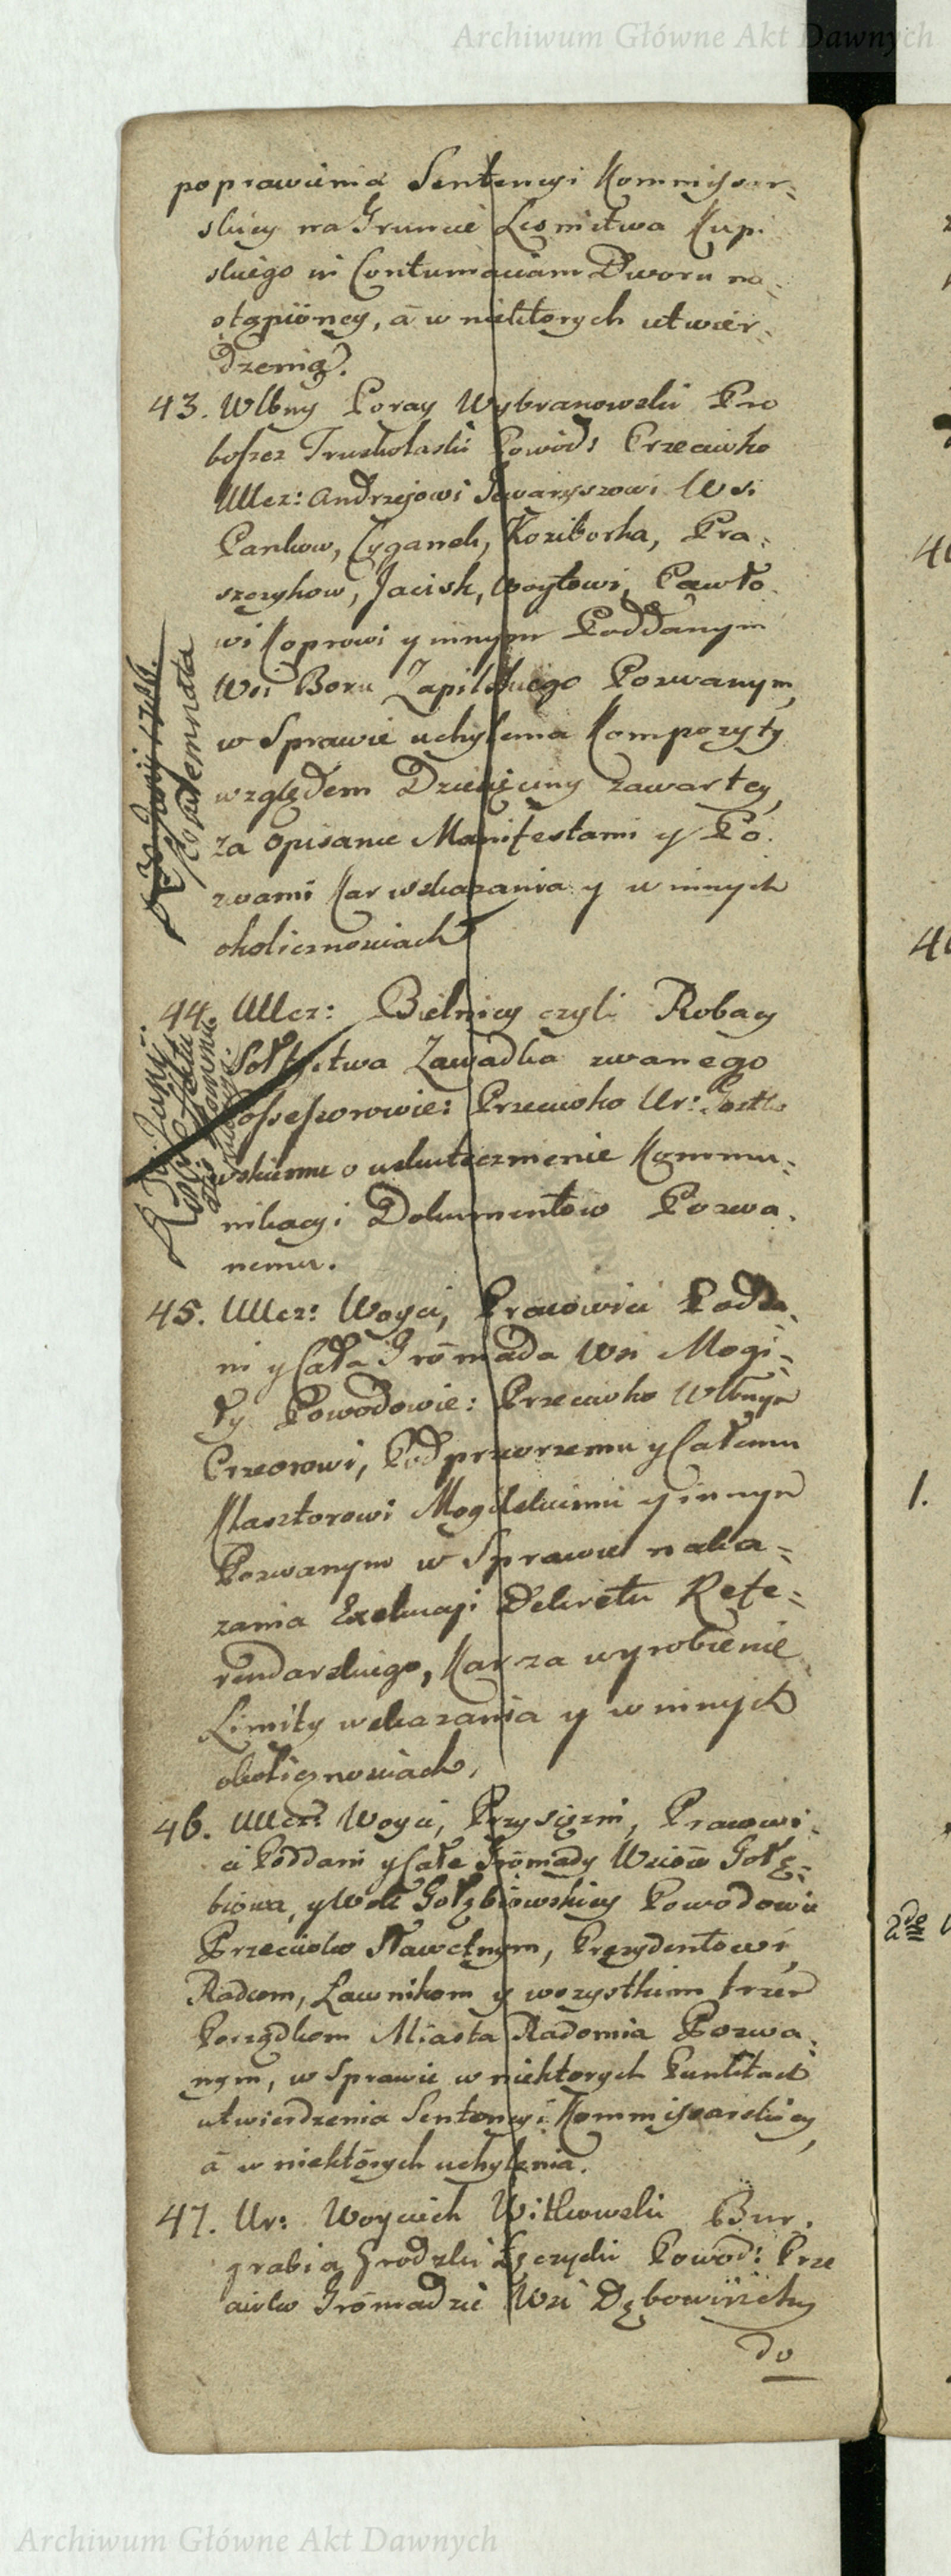 Archiwum Główne Akt Dawnych
poprawienia Sentencyi Kommissar=
skiey na Gruncie Lesnictwa Kup.
skiego in Contumaciam Dworu na=
stąpioney, á w niektorych utwier=
dzenia.
43. Wlbny Poray Wybranowski Pro
boszcz Truskolaski Powod: Przeciwko
Ucz: Andrzejowi Wsi
Pankow, Cyganek, Koziborka, Pra=
szczykow, Jacisk, Woytowi, Pawło
wi Koprowi y innym Poddanym
Wsi Boru Zapilskiego Pozwanym,
w Sprawie uchylenia Kompozyty
względem Dziesięciny zawartey,
za opisanie Manifestami y Po.
zwami Kar wskazania y w innych
okolicznosciach
Kondemnata
44. Ucz: Bielnicy czyli Robacy
Sołtystwa Zawadka zwanego
Possessorowie: Przeciwko Ur:
wskiemu o uskutecznienie Kommu=
nikacyi Dokumentow Pozwa.
nemu.
45. Ucz: Woyci, Pracowici Podda
ni y Cała Grōmada Wsi Mogi=
ły Powodowie: Przeciwko Wlbnym
Przeorowi, Podprzeorzemu y Całemu
Klasztorowi Mogilskiemu y innym
Pozwanym w Sprawie naka=
zania Exekucyi Dekretu Refe=
rendarskiego, Kar za wyrobienie
Limity wskazania y w innych
okolicznosciach,
46. Ucz: Woyci, Przysiężni, Pracowi=
ci Poddani y Całe Grōmady Wsiōw Gołę=
biowa, y Woli Gołębiowskiey Powodowie
Przeciwko Sławetnym, Prezydentowi,
Radcom, Ławnikom y wszystkim trzem
Porządkom Miasta Radomia Pozwa=
nym, w Sprawie w niektorych Punktach
utwierdzenia Sentencyi Kommissarskiey,
á w niektórych uchylenia.
47. Ur: Woyciech Witkowski Bur.
grabia Grodzki Łęczycki Powod: Prze
ciwko Grōmadzie Wsi
do
Archiwum Główne Akt Dawnych